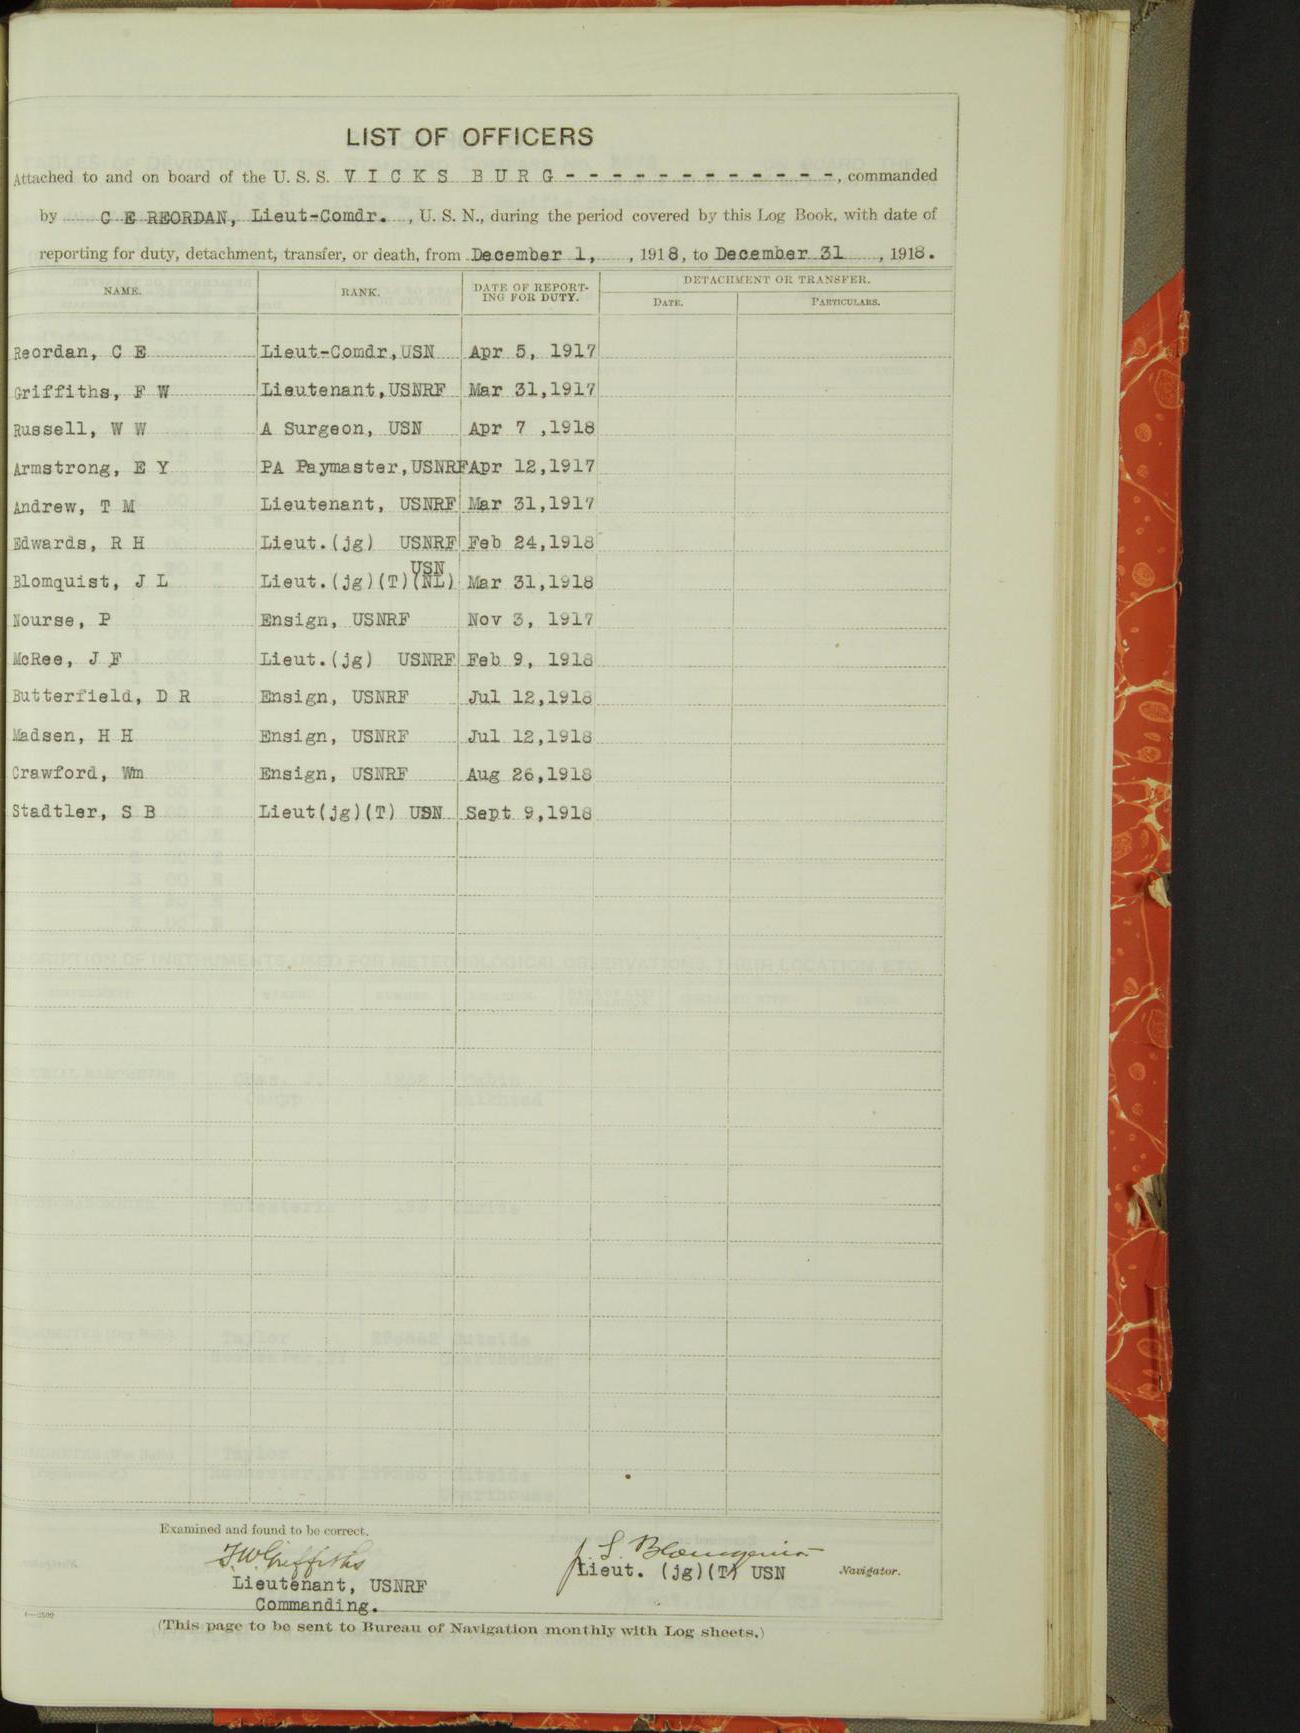 LIST OF OFFICERS
Attached to and on board of the U. S. S. V I C K S B U R G - - - - - - - - - - - - -, commanded
by C E REORDAN, Lieut-Comdr. , U. S. N., during the period covered by this Log Book, with date of
reporting for duty, detachment, transfer, or death, from December 1, , 1918, to December 31 , 1918.
NAME. RANK. DATE OF REPORT-ING FOR DUTY. DETACHMENT OR TRANSFER.
DATE. PARTICULARS.
Reordan, C E Lieut-Comdr, USN Apr 5, 1917
Griffiths, F W Lieutenant, USNRF Mar 31,1917
Russell, W W A Surgeon, USN Apr 7 ,1918
Armstrong, E Y PA Paymaster, USNRF Apr 12,1917
Andrew, T M Lieutenant, USNRF Mar 31,1917
Edwards, R H Lieut.(jg) USNRF Feb 24,1918
USN
Blomquist, J L Lieut.(jg)(T)(NL) Mar 31,1918
Nourse, P Ensign, USNRF Nov 3, 1917
McRee, J F Lieut.(jg) USNRF Feb 9, 1918
Butterfield, D R Ensign, USNRF Jul 12,1918
Madsen, H H Ensign, USNRF Jul 12,1918
Crawford, Wm Ensign, USNRF Aug 26,1918
Stadtler, S B Lieut(jg)(T) USN Sept 9,1918
Examined and found to be correct.
F.W. Griffiths
Lieutenant, USNRF
Commanding.
J. L. Blomquist
Lieut. (jg)(T) USN Navigator.
(This page to be sent to Bureau of Navigation monthly with Log sheets.)